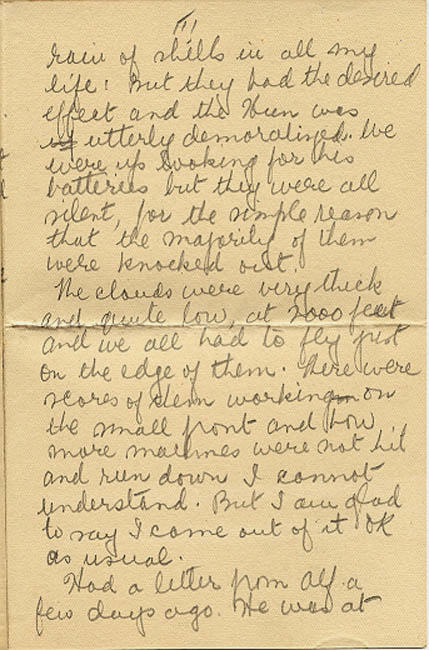 III
rain of shells in all my
life! But they had the desired
effect and the Hun was
utterly demoralized. We
were up looking for his
batteries but they were all
silent, for the simple reason
that the majority of them
were knocked out.
The clouds were very thick
and quite low, at 2000 feet
and we all had to fly just
on the edge of them. There were
scores of them working on
the small front and how
more machines were not hit
and run down I cannot
understand. But I am glad
to say I came out of it OK
as usual.
Had a letter from Alf a
few days ago. He was at